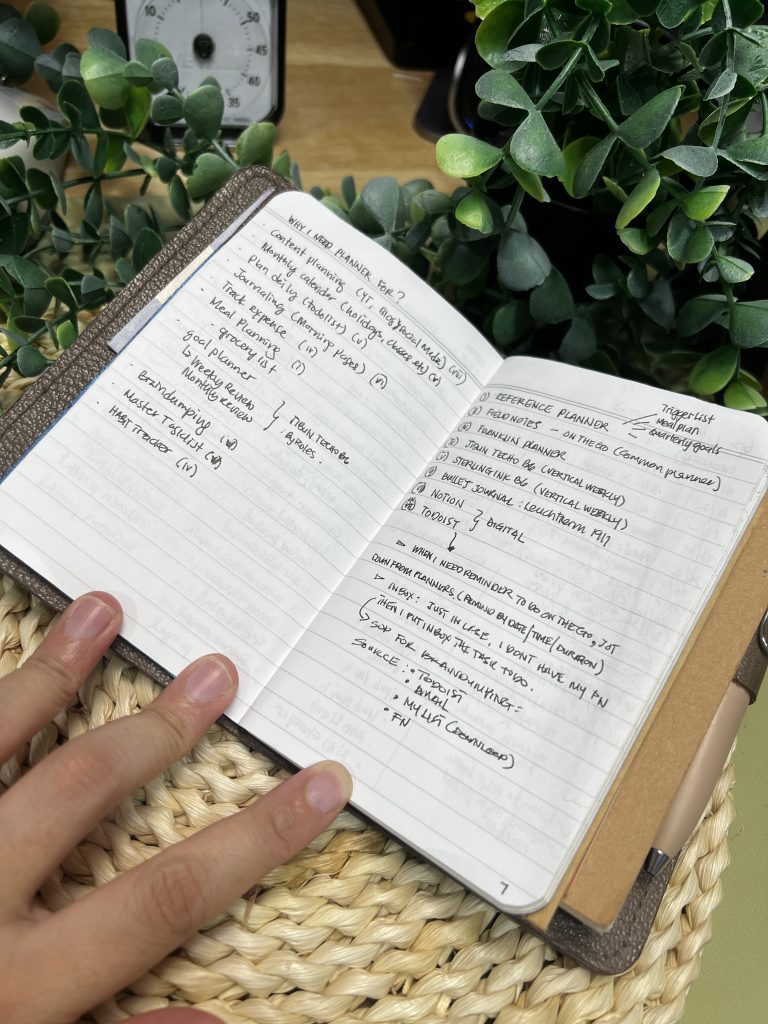 10
50
45
40
35
WHY I NEED PLANNER FOR?
- Content planning (YT, Blog, Social Media) (viii)
- Monthly calender (holidays, classes etc) (v)
- Plan daily (todolist) (v)
- Journaling (Morning Pages) (vi)
- Track expense (iv)
- Meal Planning (i)
- grocery list
- goal planner
↳ Weekly Review
Monthly Review
} JIBUN TECHO B6
: By Roles.
- Braindumping
- Master Tasklist
- Habit Tracker (iv)
(i) REFERENCE PLANNER
Trigger List
Meal plan
quarterly goals
(ii) FIELD NOTES - ON THE GO (Common planner)
(iii) FRANKLIN PLANNER
JIBUN TECHO B6 (VERTICAL WEEKLY)
STERLING INK B6 (VERTICAL WEEKLY)
BULLET JOURNAL : Leuchtterm 1917
NOTION
TODOIST
} DIGITAL
WHEN I NEED REMINDER TO DO ON THE GO, JOT
DOWN FROM PLANNERS. (REMIND BY DATE/TIME/DURATION)
INBOX : JUST IN CASE, I DON'T HAVE MY FN
THEN I PUT INBOX THE TASK TO DO.
SOP FOR BRAINDUMPING =
SOURCE : • TODOIST
• EMAIL
• MY LIST (DOWNLOAD)
• FN
7